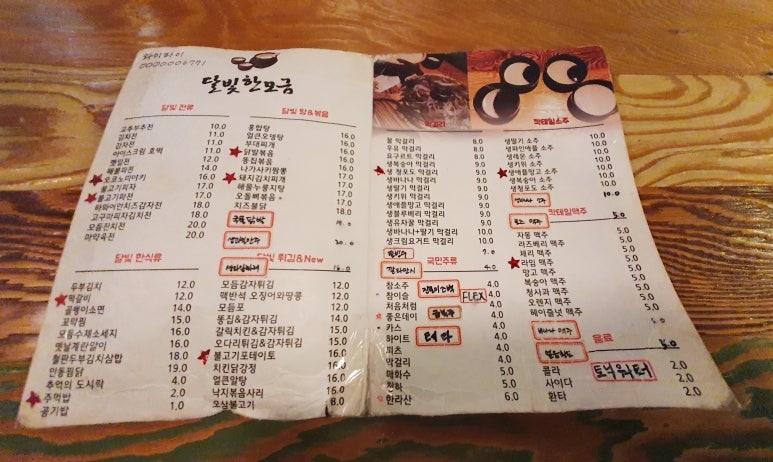 와이파이
0000006771
달빛한모금
달빛 전류
고추부추전 10.0
김치전 11.0
감자전 11.0
아이스크림 호떡 11.0
깻잎전 12.0
해물파전 14.0
오코노미야끼 16.0
불고기피자 17.0
불고기파전 17.0
하와이안치즈감자전 18.0
고구마피자김치전 19.0
모듬잔치전 20.0
마약육전 20.0
달빛 탕&볶음
홍합탕
얼큰오뎅탕 16.0
부대찌개 16.0
닭발볶음 16.0
똥집볶음 16.0
나가사키짬뽕 16.0
돼지김치찌개 16.0
해물누룽지탕 17.0
오돌뼈볶음 17.0
치즈불닭 18.0
국물닭발
20.0
달빛 한식류
두부김치 12.0
떡갈비 12.0
골뱅이소면 14.0
꼬막찜 15.0
모듬수제소세지 16.0
옛날계란말이 16.0
철판두부김치삼합 18.0
안동찜닭 19.0
추억의 도시락 4.0
주먹밥 2.0
공기밥 1.0
달빛 튀김&New 16.0
모듬감자튀김 12.0
맥반석 오징어와땅콩 12.0
모듬포 12.0
똥집&감자튀김 14.0
갈릭치킨&감자튀김 15.0
오다리튀김&감자튀김 16.0
불고기포테이토 16.0
치킨닭강정 16.0
얼큰알탕 16.0
낙지볶음사리 16.0
오삼불고기 8.0
막걸리
꿀 막걸리 8.0
우유 막걸리 8.0
요구르트 막걸리 8.0
생복숭아 막걸리 9.0
생 청포도 막걸리 9.0
생바나나 막걸리 9.0
생딸기 막걸리 9.0
생키위 막걸리 9.0
생애플망고 막걸리 9.0
생블루베리 막걸리 9.0
생유자꿀 막걸리 9.0
생바나나+딸기 막걸리 9.0
생크림요거트 막걸리 9.0
국민주류 4.0
참소주 4.0
참이슬 4.0
FLEX
처음처럼 4.0
좋은데이 4.0
카스 4.0
하이트 4.0
테라
피츠 4.0
막걸리 4.0
매화수 5.0
청하 5.0
한라산 6.0
막테일소주
생딸기 소주 10.0
생파인애플 소주 10.0
생레몬 소주 10.0
생키위 소주 10.0
생애플망고 소주 10.0
생복숭아 소주 10.0
생청포도 소주 10.0
10.0
칵테일맥주 5.0
자몽 맥주 5.0
라즈베리 맥주 5.0
체리 맥주 5.0
라임 맥주 5.0
망고 맥주 5.0
복숭아 맥주 5.0
청사과 맥주 5.0
오렌지 맥주 5.0
헤이즐넛 맥주 5.0
바나나 맥주
음료 5.0
콜라 2.0
사이다 2.0
환타 2.0
토닉워터